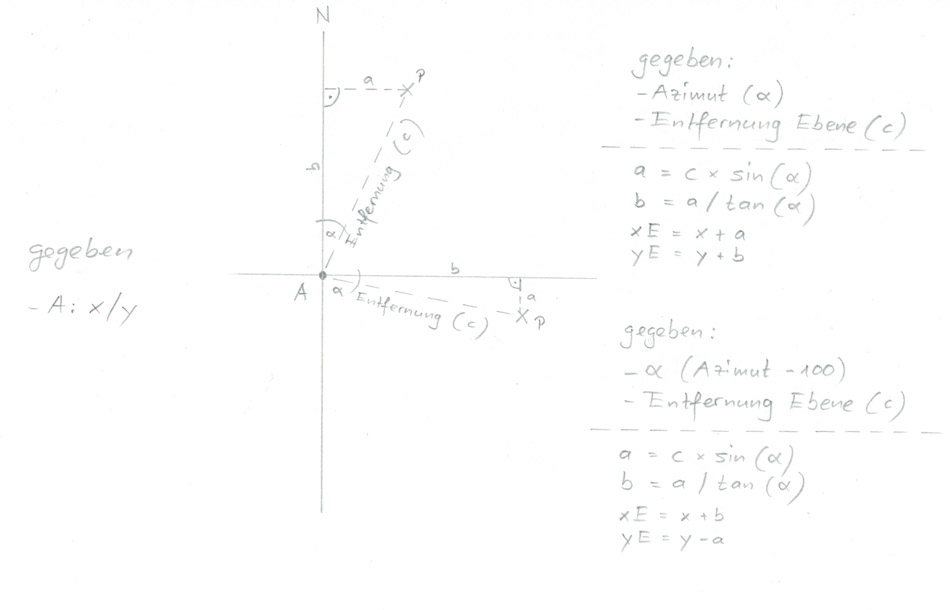 N
a
P
b
α
Entfernung (c)
A
α
Entfernung (c)
b
a
P
gegeben
- A: x/y
gegeben:
- Azimut (α)
- Entfernung Ebene (c)
a = c × sin (α)
b = a / tan (α)
xE = x + a
yE = y + b
gegeben:
- α (Azimut - 100)
- Entfernung Ebene (c)
a = c × sin (α)
b = a / tan (α)
xE = x + b
yE = y - a